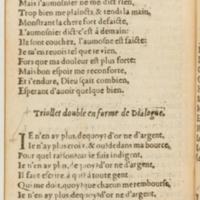 Mais l'aumosnier ne me dict rien,
Trop bien me plaincts, & tends la main,
Monstrant la chere fort defaicte,
L'aumosnier dict c'est à demain:
Ils sont couchez, l'aumosne est faicte:
Ie m'en reuois tel que ie vien.
Fors que ma douleur est plus forte:
Mais bon espoir me reconforte,
Et i'endure, Dieu sçait combien,
Esperant d'auoir quelque bien.
Triollet double en forme de Dialogue.
IE n'en ay plus, dequoy? d'or ne d'argent,
Ie n'en ay plus croix, & ou? dedans ma bource,
Pour quel raison? car ie suis indigent,
Ie n'en ay plus, dequoy? d'or ne d'argent,
Il s'en faict
Qui me doit, quoy? que chacun me rembourse,
Ie n'en ay plus, dequoy? d'or ne d'argent,